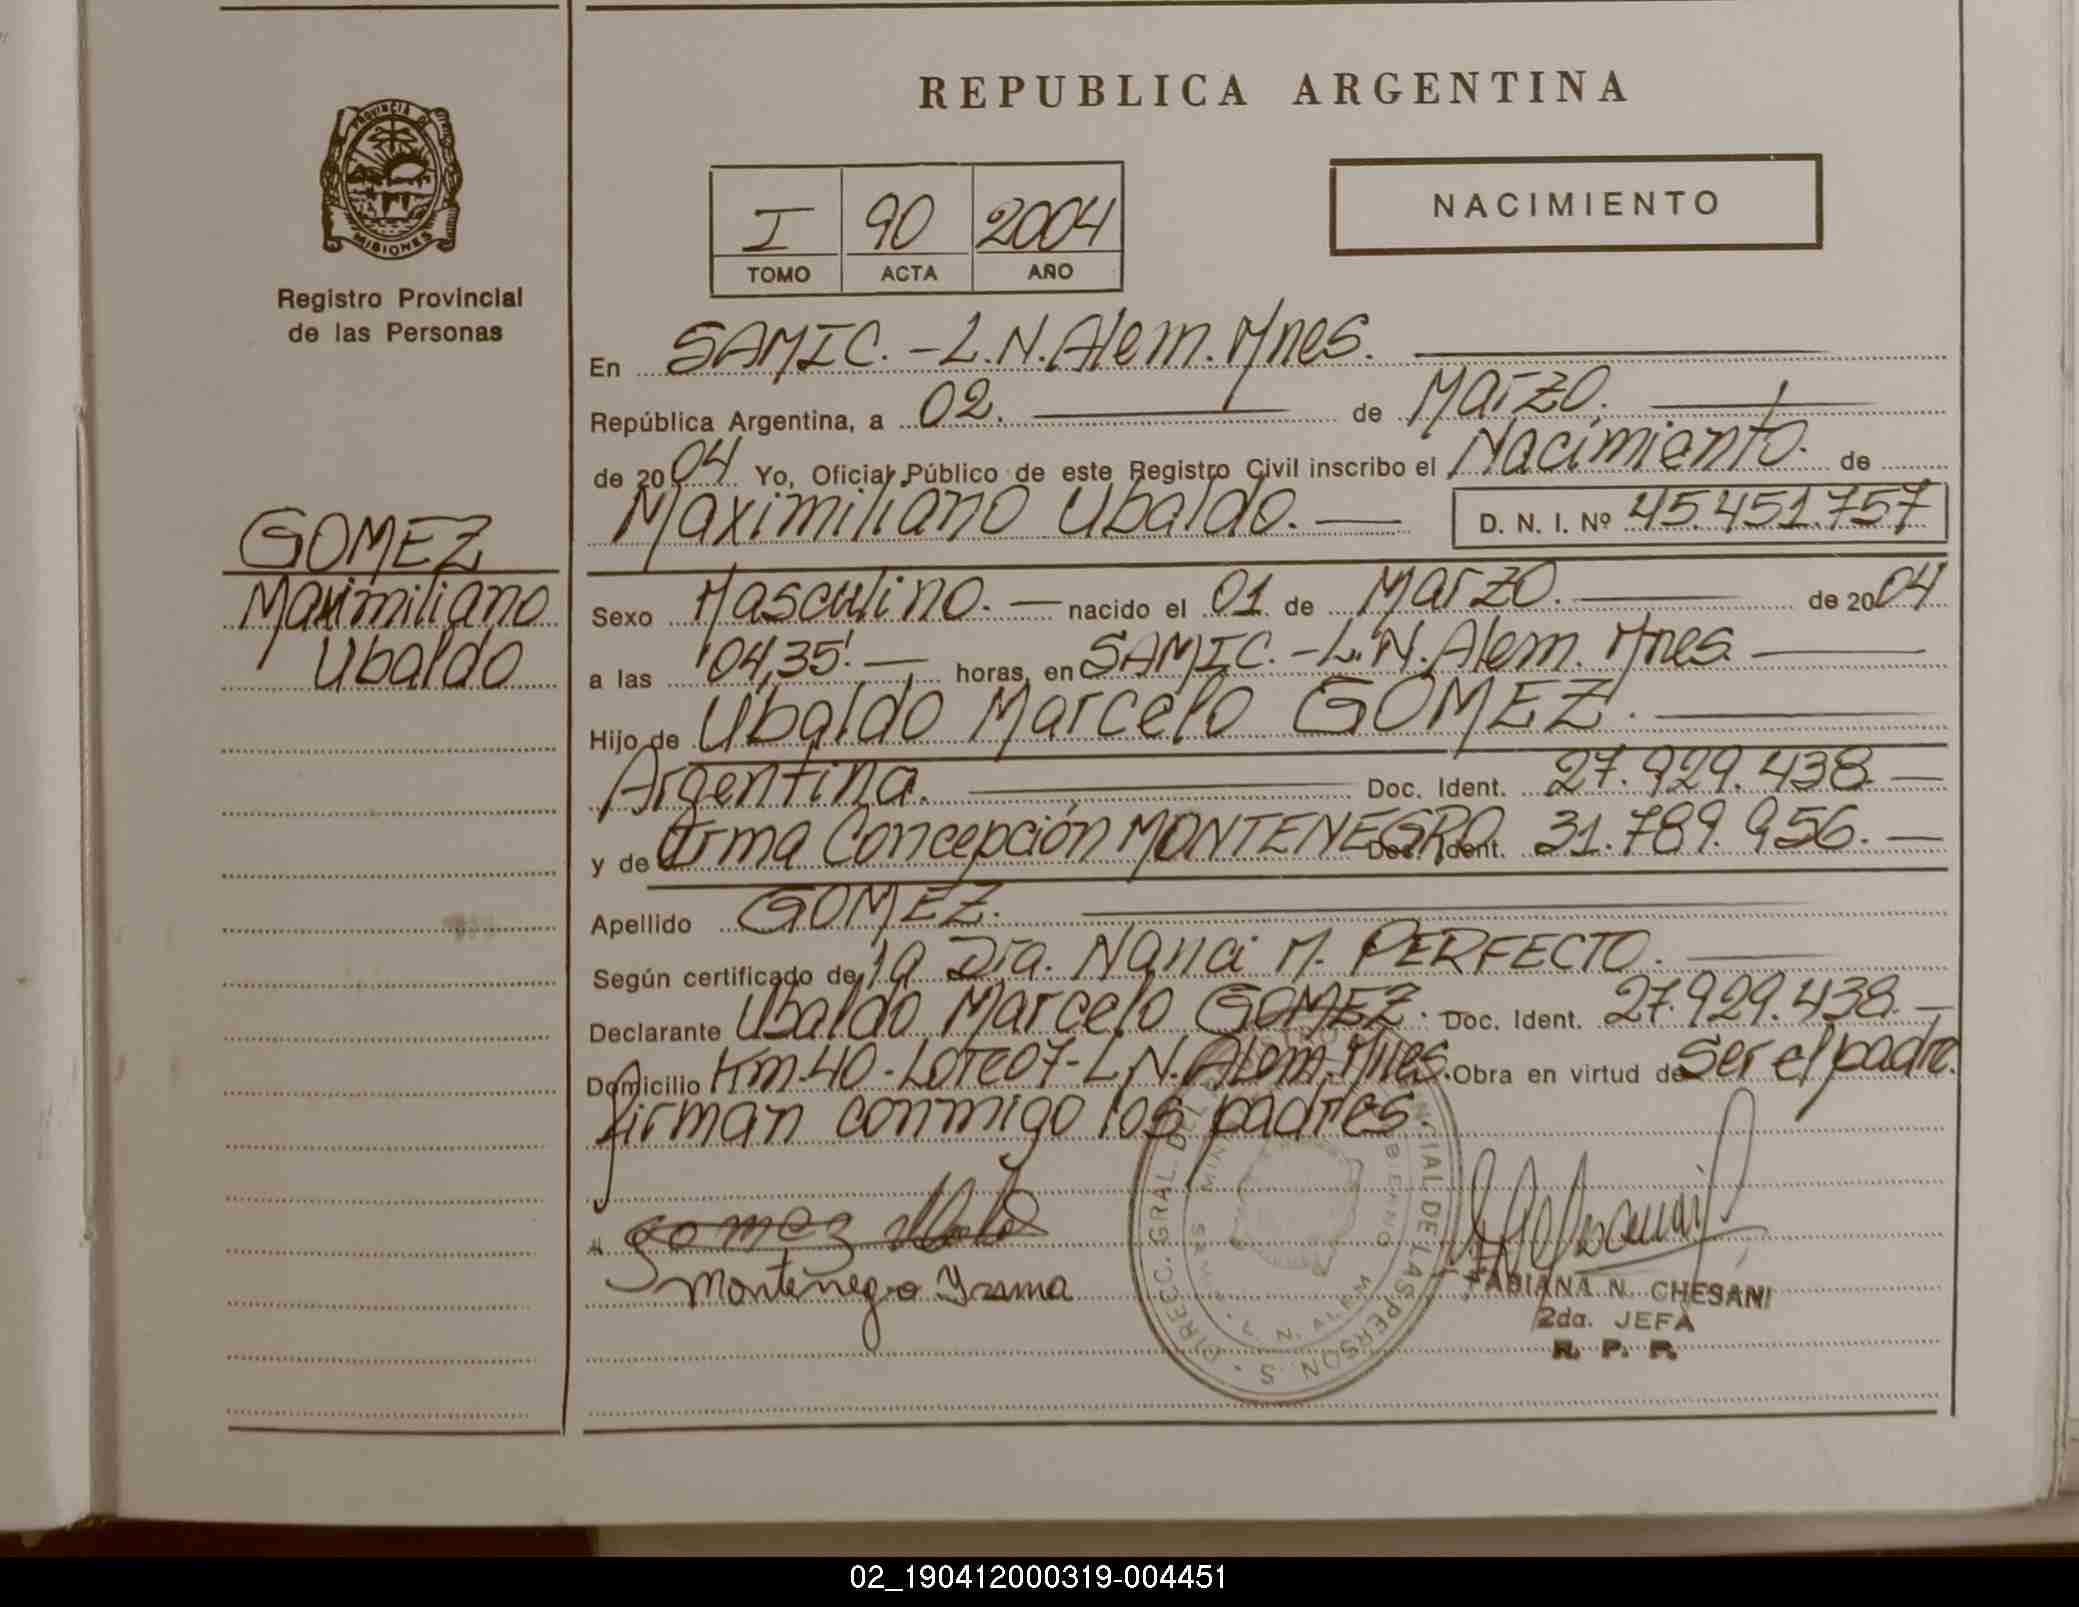 REPUBLICA ARGENTINA
PROVINCIA DE
MISIONES
Registro Provincial
de las Personas
I 90 2004
TOMO ACTA AÑO
NACIMIENTO
En SAMIC. - L.N. Alem. Mnes.
República Argentina, a 02. de Marzo.
de 2004 Yo, Oficial Público de este Registro Civil inscribo el Nacimiento. de
Maximiliano Ubaldo. D. N. I. Nº 45.451.757
GOMEZ
Maximiliano
Ubaldo
Sexo Masculino. nacido el 01. de Marzo. de 2004
a las 04,35'. horas, en SAMIC. - L.N. Alem. Mnes.
Hijo de Ubaldo Marcelo GOMEZ.
Argentina. Doc. Ident. 27.929.438
y de Irma Concepción MONTENEGRO. Doc. Ident. 31.789.956.
Apellido GOMEZ.
Según certificado de la Dra. Nanci M. PERFECTO.
Declarante Ubaldo Marcelo GOMEZ. Doc. Ident. 27.929.438.
Domicilio Km. 40 - Lote 07 - L.N. Alem, Mnes. Obra en virtud de Ser el padre.
firman conmigo los padres.
gomez
Montenegro Yrma
DIRECC. GRAL. DEL PROVINCIAL DE LAS PERSONAS
L. N. ALEM
FABIANA N. CHESANI
2da. JEFA
R. P. P.
02_190412000319-004451